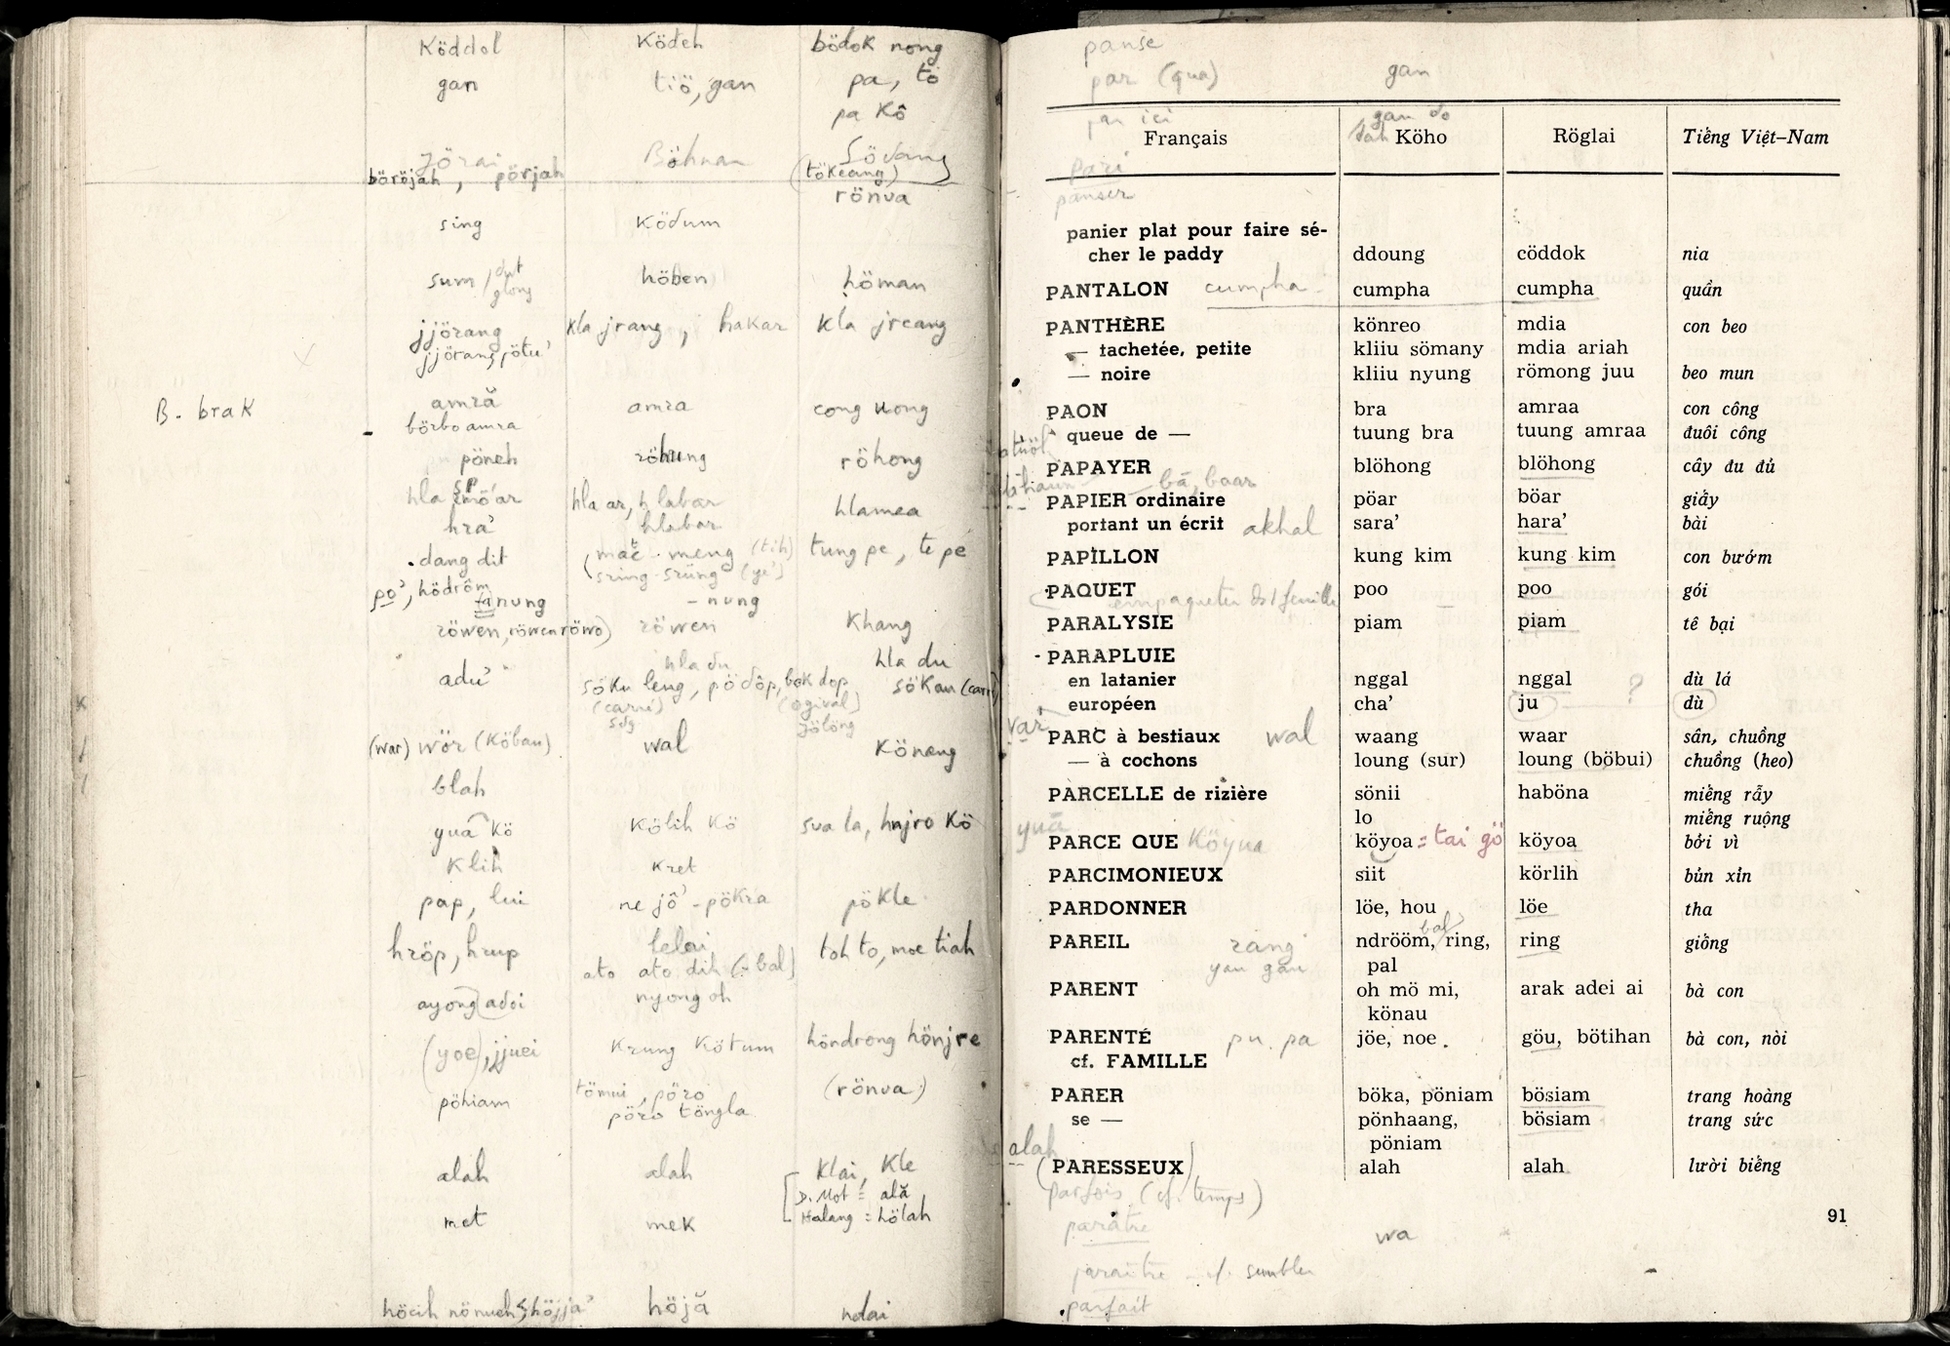 Köddol Ködeh bödok nong
gan tiö, gan pa, tö
pa Kô
Jörai Böhnan Södang
böröjah, pörjah (tökeang)
rönva
sing Ködum
sum / dut glong höben höman
jjörang kla jrang, hakar kla jreang
jjörang pötu'
B. brak amră amra cong wong
börbo amra
pöneh röhung röhong
hla ar, hlabar hlamea
hra' hlabar
dang dit meng (tih) tung pe, te pe
po', hödrôm
nung - nung
röwen röwen Khang
hla du hla du
adu' söku leng, pödôp, bok dop sökau
(carré) (ogival)
sdg jölöng
(war) wör (Köbau) wal Köneng
blah
yua kö Kölih Kö sua la, hnjro Kö
Klih kret
pap, lui ne jô' - pökra pökle
hröp, hrup lelai toh to, moe tiah
ato ato dih (- bal)
ayong adoi nyong oh
(yoe), jjuei Krung Kötum höndrong hönjre
pöhiam tömui, pöro (rönva)
pöro töngla
alah alah Klai, Kle
D. Mot = ală
met mek Halang = hölah
höjă ndai
panse
par (qua) gan
par ici gan do
Français Köho Röglai Tiếng Việt-Nam
pari
panser
panier plat pour faire sé-
cher le paddy ddoung cöddok nia
PANTALON cumpha cumpha cumpha quần
PANTHÈRE könreo mdia con beo
— tachetée, petite kliiu sömany mdia ariah
— noire kliiu nyung römong juu beo mun
PAON bra amraa con công
queue de — tuung bra tuung amraa đuôi công
PAPAYER blöhong blöhong cây đu đủ
bă, baar
PAPIER ordinaire pöar böar giấy
portant un écrit akhal sara' hara' bài
PAPILLON kung kim kung kim con bướm
PAQUET poo poo gói
PARALYSIE piam piam tê bại
PARAPLUIE
en latanier nggal nggal dù lá
européen cha' ju ? dù
var
PARC à bestiaux wal waang waar sân, chuồng
— à cochons loung (sur) loung (böbui) chuồng (heo)
PARCELLE de rizière sönii haböna miếng rẫy
lo miếng ruộng
yuă
PARCE QUE Köyua köyoa = tai gö köyoa bởi vì
PARCIMONIEUX siit körlih bủn xỉn
PARDONNER löe, hou löe tha
bal
PAREIL rang ndrööm, ring, ring giống
yau gău pal
PARENT oh mö mi, arak adei ai bà con
könau
PARENTÉ pu. pa jöe, noe göu, bötihan bà con, nòi
cf. FAMILLE
PARER böka, pöniam bösiam trang hoàng
se — pönhaang, bösiam trang sức
pöniam
alah
(PARESSEUX) alah alah lười biếng
parfois (cf. temps)
91
paraître
wa
paraître - cf. sembler
parfait